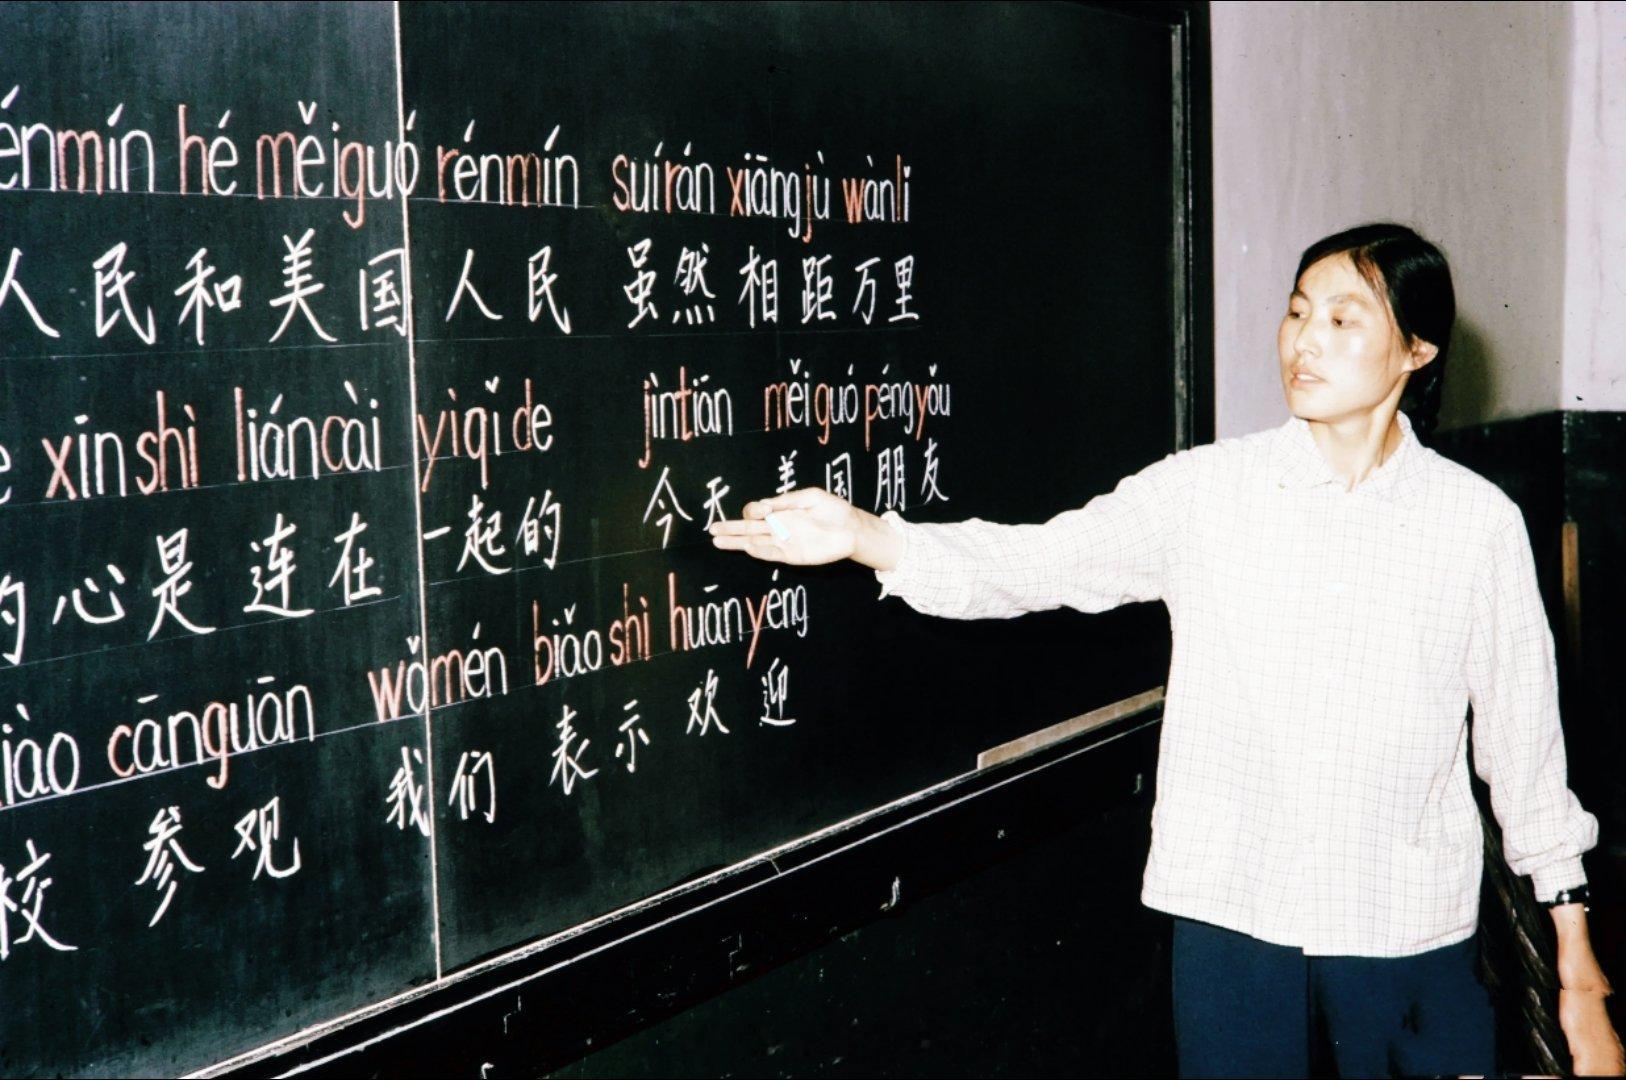 énmín hé měiguó rénmín suírán xiāngjù wànli
人民和美国人民 虽然相距万里
xinshì liáncài yìqǐde jīntiān měiguó péngyǒu
的心是连在一起的 今天美国朋友
iào cānguān wǒmén biǎoshì huānyéng
校参观 我们表示欢迎